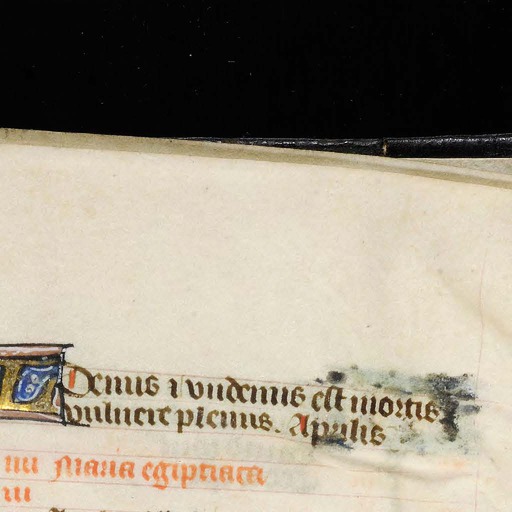 Denus i undenus est mortis
vulnere plenus. Aprilis
iiii Maria egiptiaca
iii